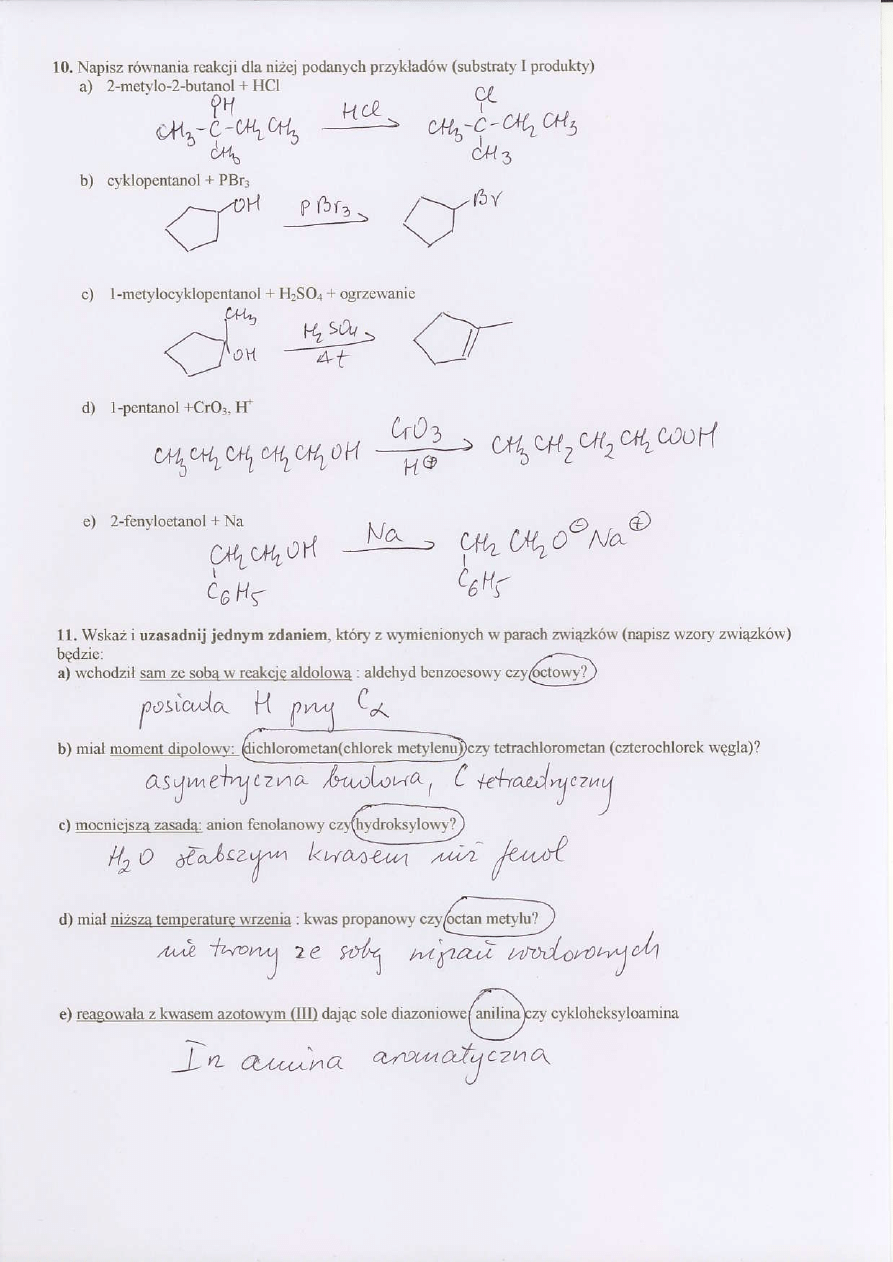 10. Napisz równania reakcji dla niżej podanych przykładów (substraty I produkty)
a) 2-metylo-2-butanol + HCl
OH HCl Cl
CH3-C-CH2CH3 → CH3-C-CH2CH3
CH3 CH3
b) cyklopentanol + PBr3
OH PBr3 → Br
c) 1-metylocyklopentanol + H2SO4 + ogrzewanie
CH3
OH H2SO4 →
Δt
d) 1-pentanol +CrO3, H+
CrO3
CH3CH2CH2CH2CH2OH → CH3CH2CH2CH2COOH
H⊕
e) 2-fenyloetanol + Na
CH2CH2OH Na → CH2CH2O⊖Na⊕
C6H5 C6H5
11. Wskaż i uzasadnij jednym zdaniem, który z wymienionych w parach związków (napisz wzory związków)
będzie:
a) wchodził sam ze sobą w reakcję aldolową : aldehyd benzoesowy czy octowy?
posiada H przy Cα
b) miał moment dipolowy: dichlorometan(chlorek metylenu) czy tetrachlorometan (czterochlorek węgla)?
asymetryczna budowa, C tetraedryczny
c) mocniejszą zasadą: anion fenolanowy czy hydroksylowy?
H2O słabszym kwasem niż fenol
d) miał niższą temperaturę wrzenia : kwas propanowy czy octan metylu?
nie tworzy ze sobą wiązań wodorowych
e) reagowała z kwasem azotowym (III) dając sole diazoniowe anilina czy cykloheksyloamina
I rz amina aromatyczna